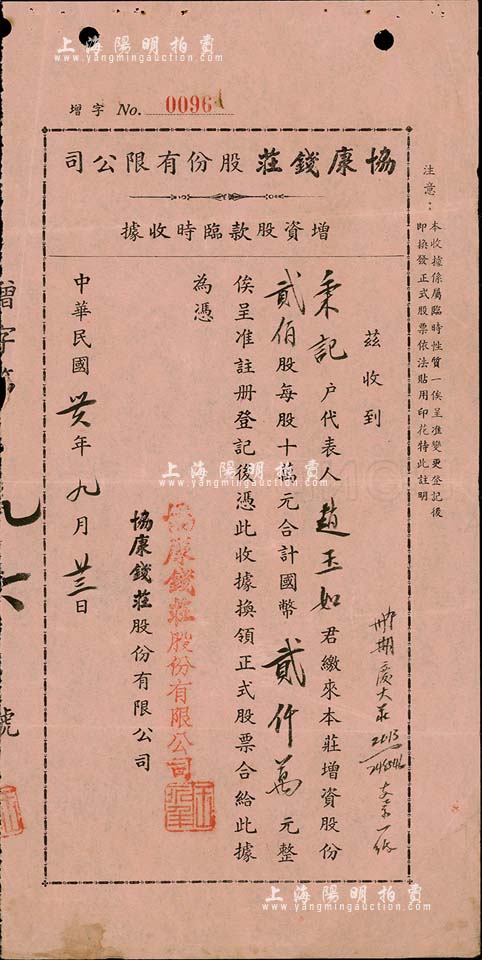 上海陽明拍賣
www.yangmingauction.com
增字 No. 0096
司公限有份股莊錢康協
據收時臨款股資增
注意：本收據係屬臨時性質一俟呈准變更登記後
即換發正式股票依法貼用印花特此註明
茲收到
秉記戶代表人趙玉如君繳來本莊增資股份
貳佰股每股十萬元合計國幣貳仟萬元整
俟呈准註册登記後憑此收據換領正式股票合給此據
為憑
協康錢莊股份有限公司
協康錢莊股份有限公司
中華民國卅六年九月廿三日
增字第
九六
號
上海陽明拍賣
www.yangmingauction.com
上海陽明拍賣
www.yangmingauction.com